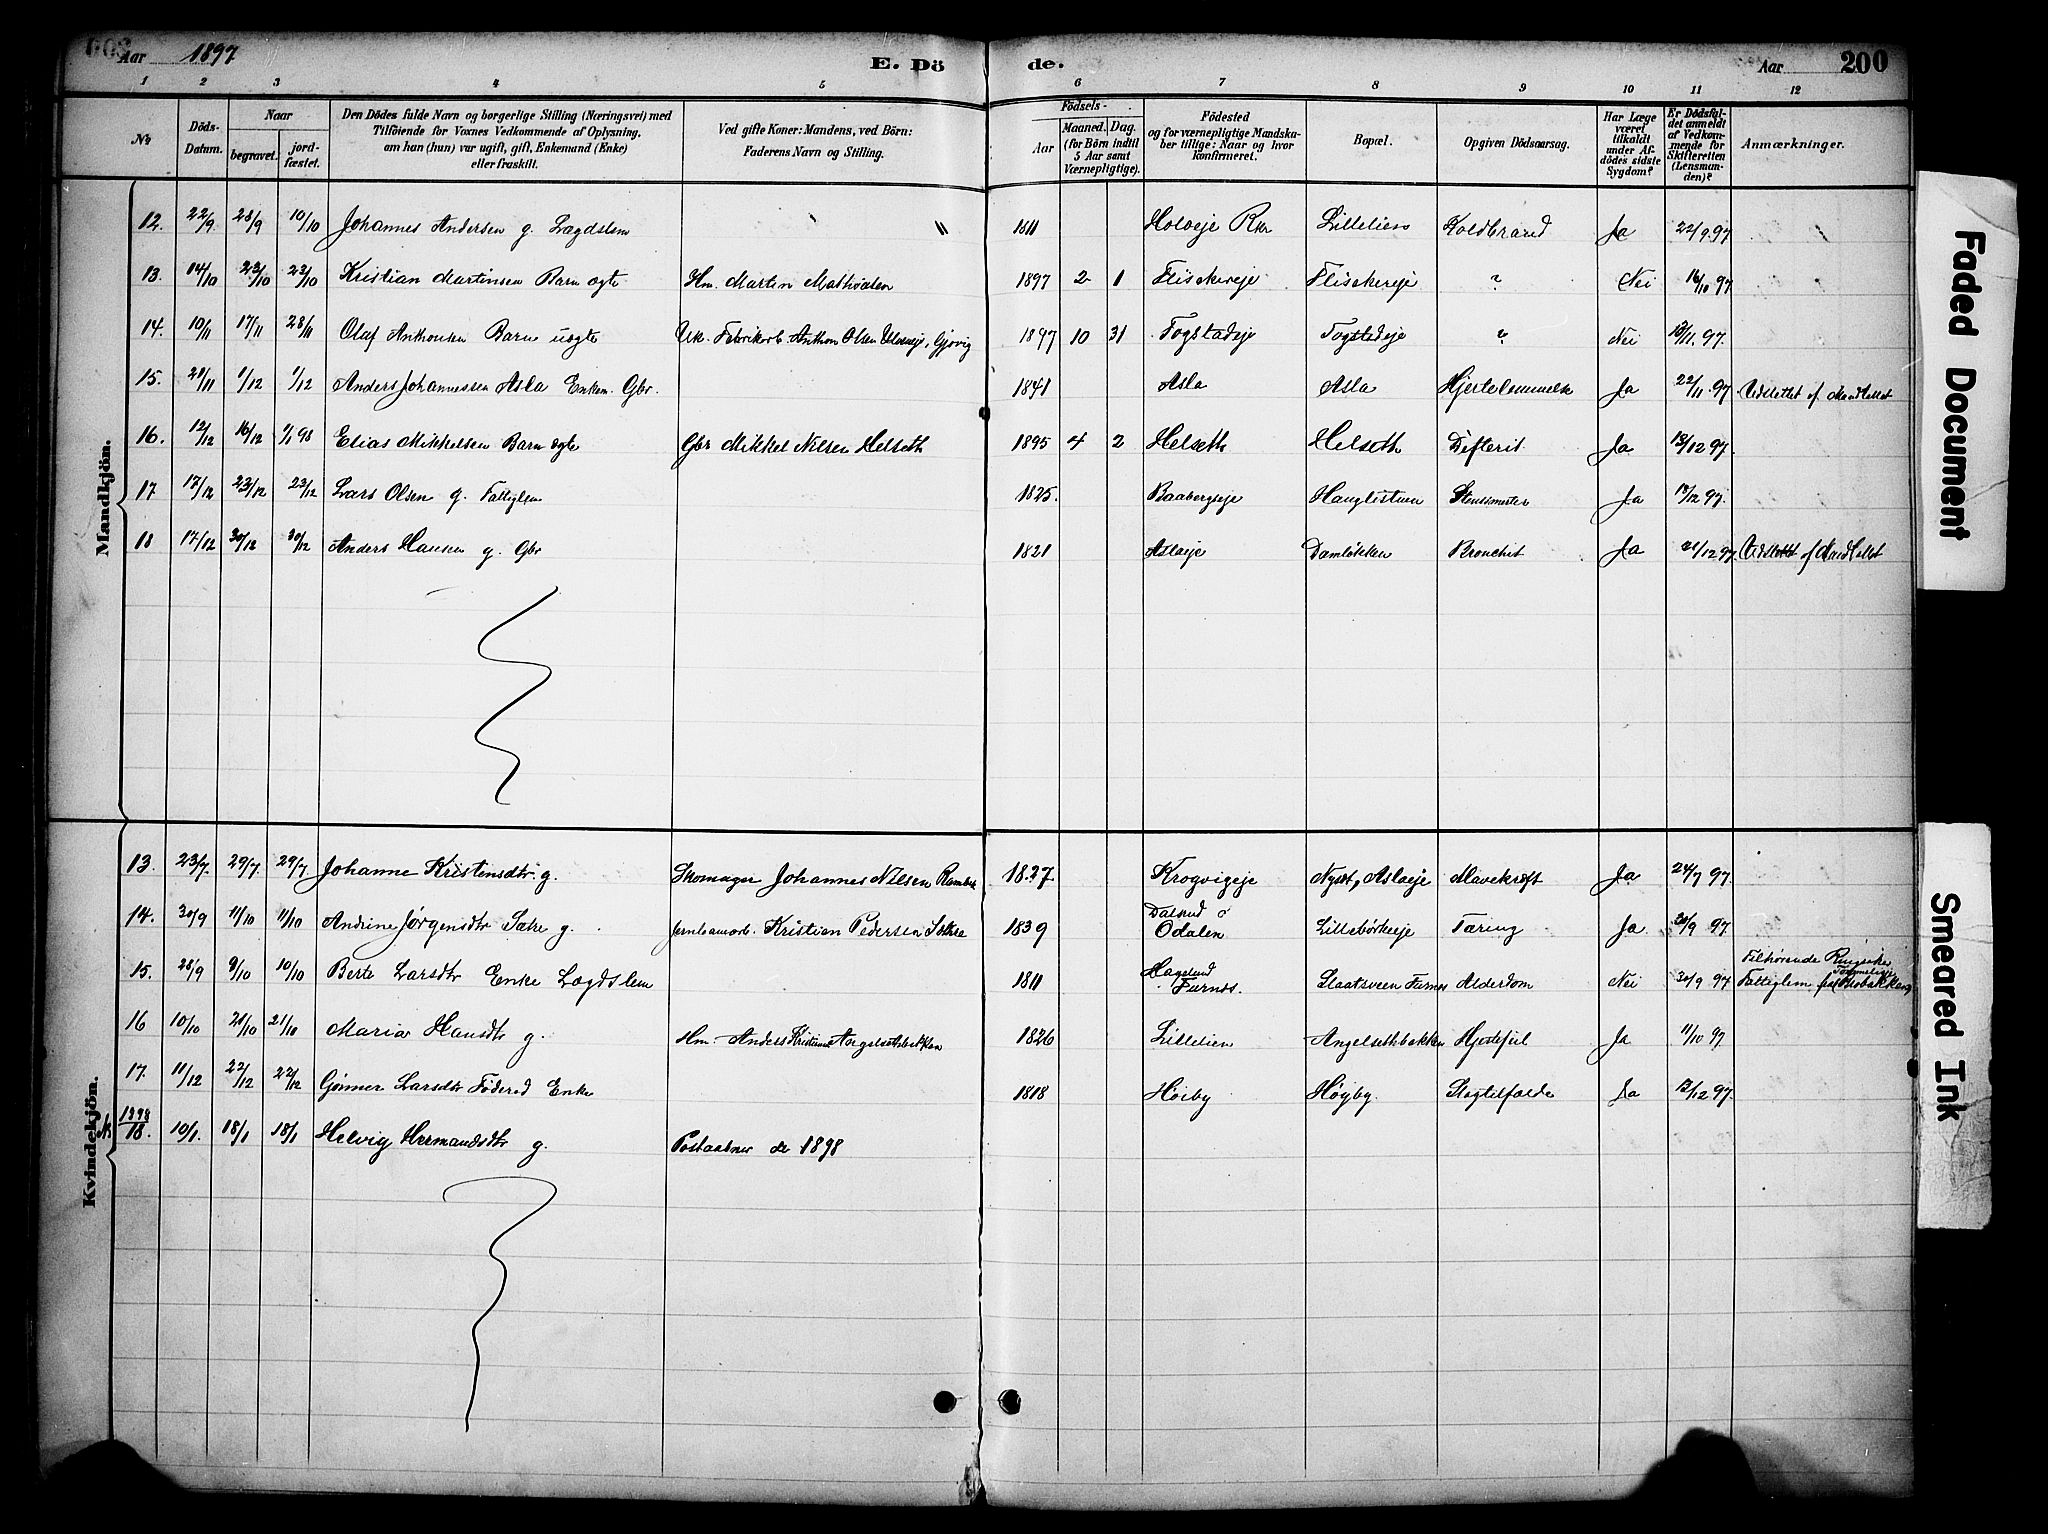 Aar 1897 E. Dö de. Aar 200
1 2 3 4 5 6 7 8 9 10 11 12
No
Döds-Datum.
Naar
begravet.
jordfæstet.
Den Dödes fulde Navn og borgerlige Stilling (Næringsvei) med
Tilföiende for Voxnes Vedkommende af Oplysning,
om han (hun) var ugift, gift, Enkemand (Enke)
eller fraskilt.
Ved gifte Koner: Mandens, ved Börn:
Faderens Navn og Stilling.
Födsels-
Aar
Maaned. Dag.
(for Börn indtil
5 Aar samt
Værnepligtige).
Födested
og for værnepligtige Mandska-
ber tillige: Naar og hvor
konfirmeret.
Bopæl.
Opgiven Dödsaarsag.
Har Læge
været
tilkaldt
under Af-
dödes sidste
Sygdom?
Er Dödsfal-
det anmeldt
af Vedkom-
mende for
Skifteretten
(Lensman-
den)?
Anmærkninger.
Mandkjön.
12. 22/9 28/9 10/10 Johannes Andersen g. Lægdslem " 1811 Holveje Rkr Lillelien Koldbrand Ja 22/9 97
13. 14/10 23/10 23/10 Kristian Martinsen Barn ægte Hm. Martin Mathiasen 1897 2 1 Fliskereje Fliskereje ? Nei 16/10 97
14. 10/11 17/11 28/11 Olaf Anthonsen Barn uægte Uk. Fabrikarb. Anthon Olsen Gjøvig 1897 10 31 Fogstadeje Fogstadeje ? Nei 13/11 97.
15. 21/11 1/12 1/12 Anders Johannessen Asla Enkem. Gbr. 1841 Asla Asla Hjertelammelse Ja 22/11 97
16. 12/12 16/12 1/1 98 Elias Mikkelsen Barn ægte Gbr Mikkel Nilsen Helseth 1895 4 2 Helseth Helseth Difterit Ja 13/12 97.
17 17/12 23/12 23/12 Lars Olsen g. Fattiglem 1825. Baabergseje Hauglistuen Ja 17/12 97.
18 17/12 30/12 30/12 Anders Hansen g. Gbr 1821 Aslaeje Damløkken Bronchit Ja 21/12 97
Kvindekjön.
13. 23/7. 29/7. 29/7 Johanne Kristensdtr. g. Skomager Johannes Nilsen 1827 Krogvigeje Aslaeje Mavekræft Ja 24/7 97.
14. 30/9 11/10 11/10 Andrine Jørgensdtr Sætre g. Jernbanearb. Kristian Pedersen Sætre 1839 Odalen Lillebørkeeje Tæring Ja 30/9 97.
15. 28/9 9/10 10/10 Berte Larsdtr Enke Lægdslem 1811 Furnæs. Slaatsveen Furnes Alderdom Nei 30/9 97 Tilhørende Ringsaker Fattiglem
16 10/10 21/10 21/10 Maria Hansdtr g. Hm. Anders Kristiansen Angelsethbakken 1826 Lillelien Angelsethbakken Hjertefeil Ja 11/10 97
17. 11/12 22/12 22/12 Gønner Larsdtr Føderaad Enke 1818 Høiby Høyby. Slagtilfælde Ja 12/12 97.
1898
18. 10/1. 18/1 18/1 Helvig Hermandsdtr g. Postaabner de 1898
Faded Document
Smeared Ink